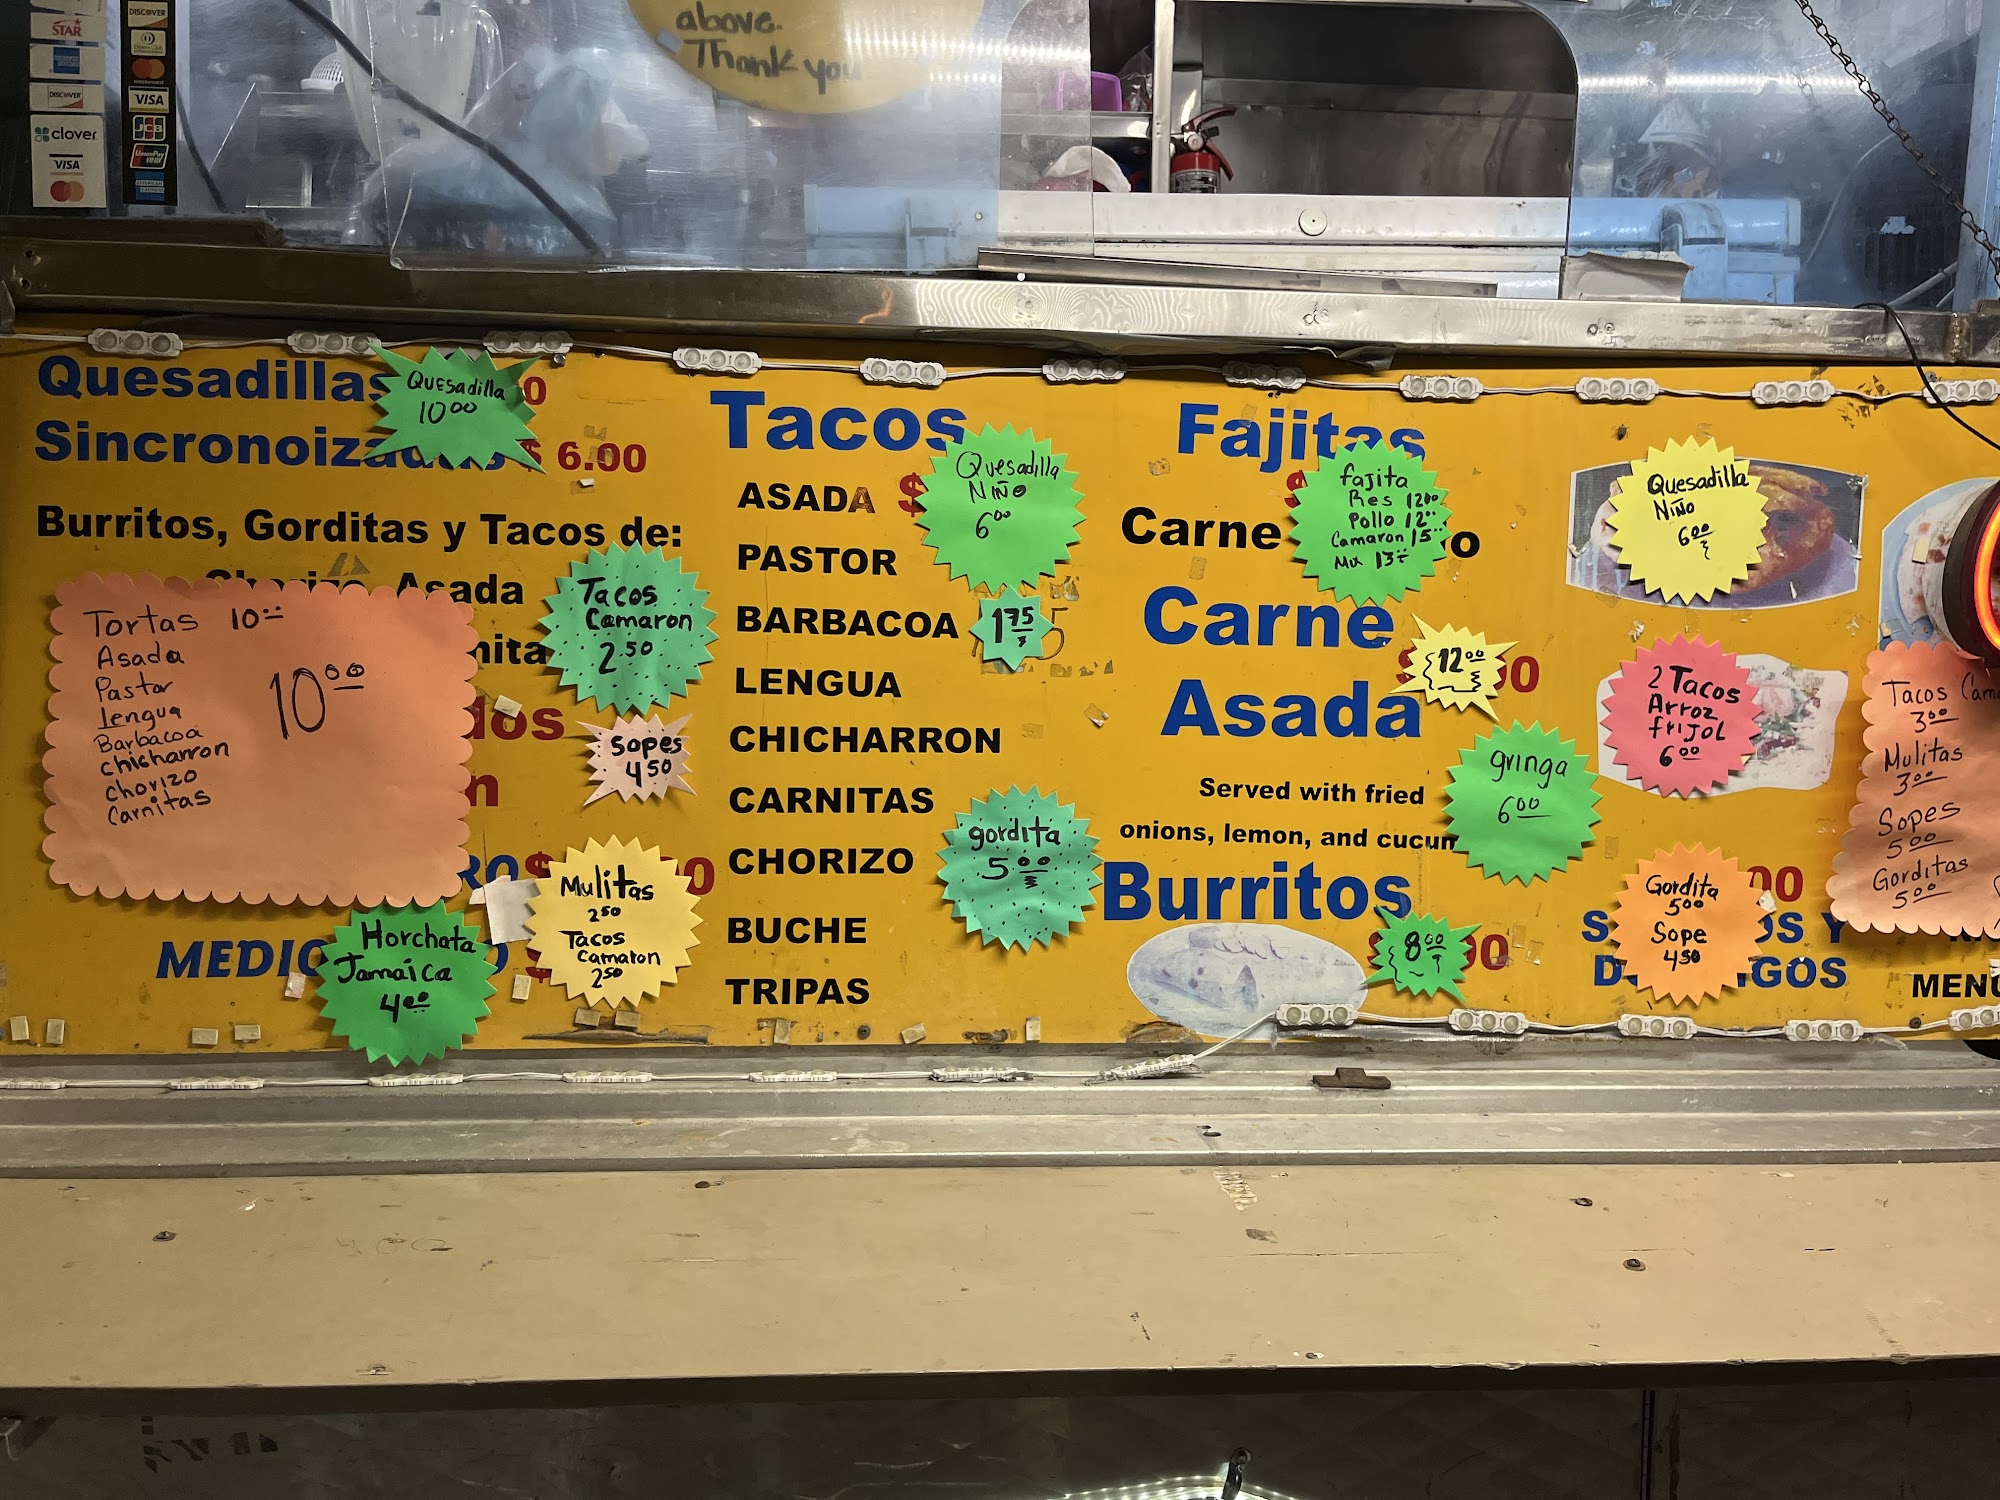 STAR
DISCOVER
clover
VISA
DISCOVER
Diners Club
mastercard
VISA
JCB
UnionPay
AMERICAN EXPRESS
above.
Thank you
Quesadillas
Quesadilla
10 00
$ 6.00
Burritos, Gorditas y Tacos de:
Asada
Tortas 10
Asada
Pastor
Lengua
Barbacoa
chicharron
chorizo
Carnitas
10 00
Tacos
Camaron
2.50
Sopes
4 50
Mulitas
2 50
Tacos
Camaron
2 50
Horchata
Jamaica
4 00
Tacos
ASADA $
PASTOR
BARBACOA
LENGUA
CHICHARRON
CARNITAS
CHORIZO
BUCHE
TRIPAS
Quesadilla
Niño
6 00
1 75
gordita
5 00
Fajitas
fajita
Res 12 00
Pollo 12
Camaron 15
Mix 13
Carne
Carne
Asada
12 00
Served with fried
onions, lemon, and cucum
gringa
6 00
Burritos
8 00
Quesadilla
Niño
6 00
2 Tacos
Arroz
frijol
6 00
Gordita
5 00
Sope
4 50
Tacos
3 00
Mulitas
3 00
Sopes
5 00
Gorditas
5 00
MENU